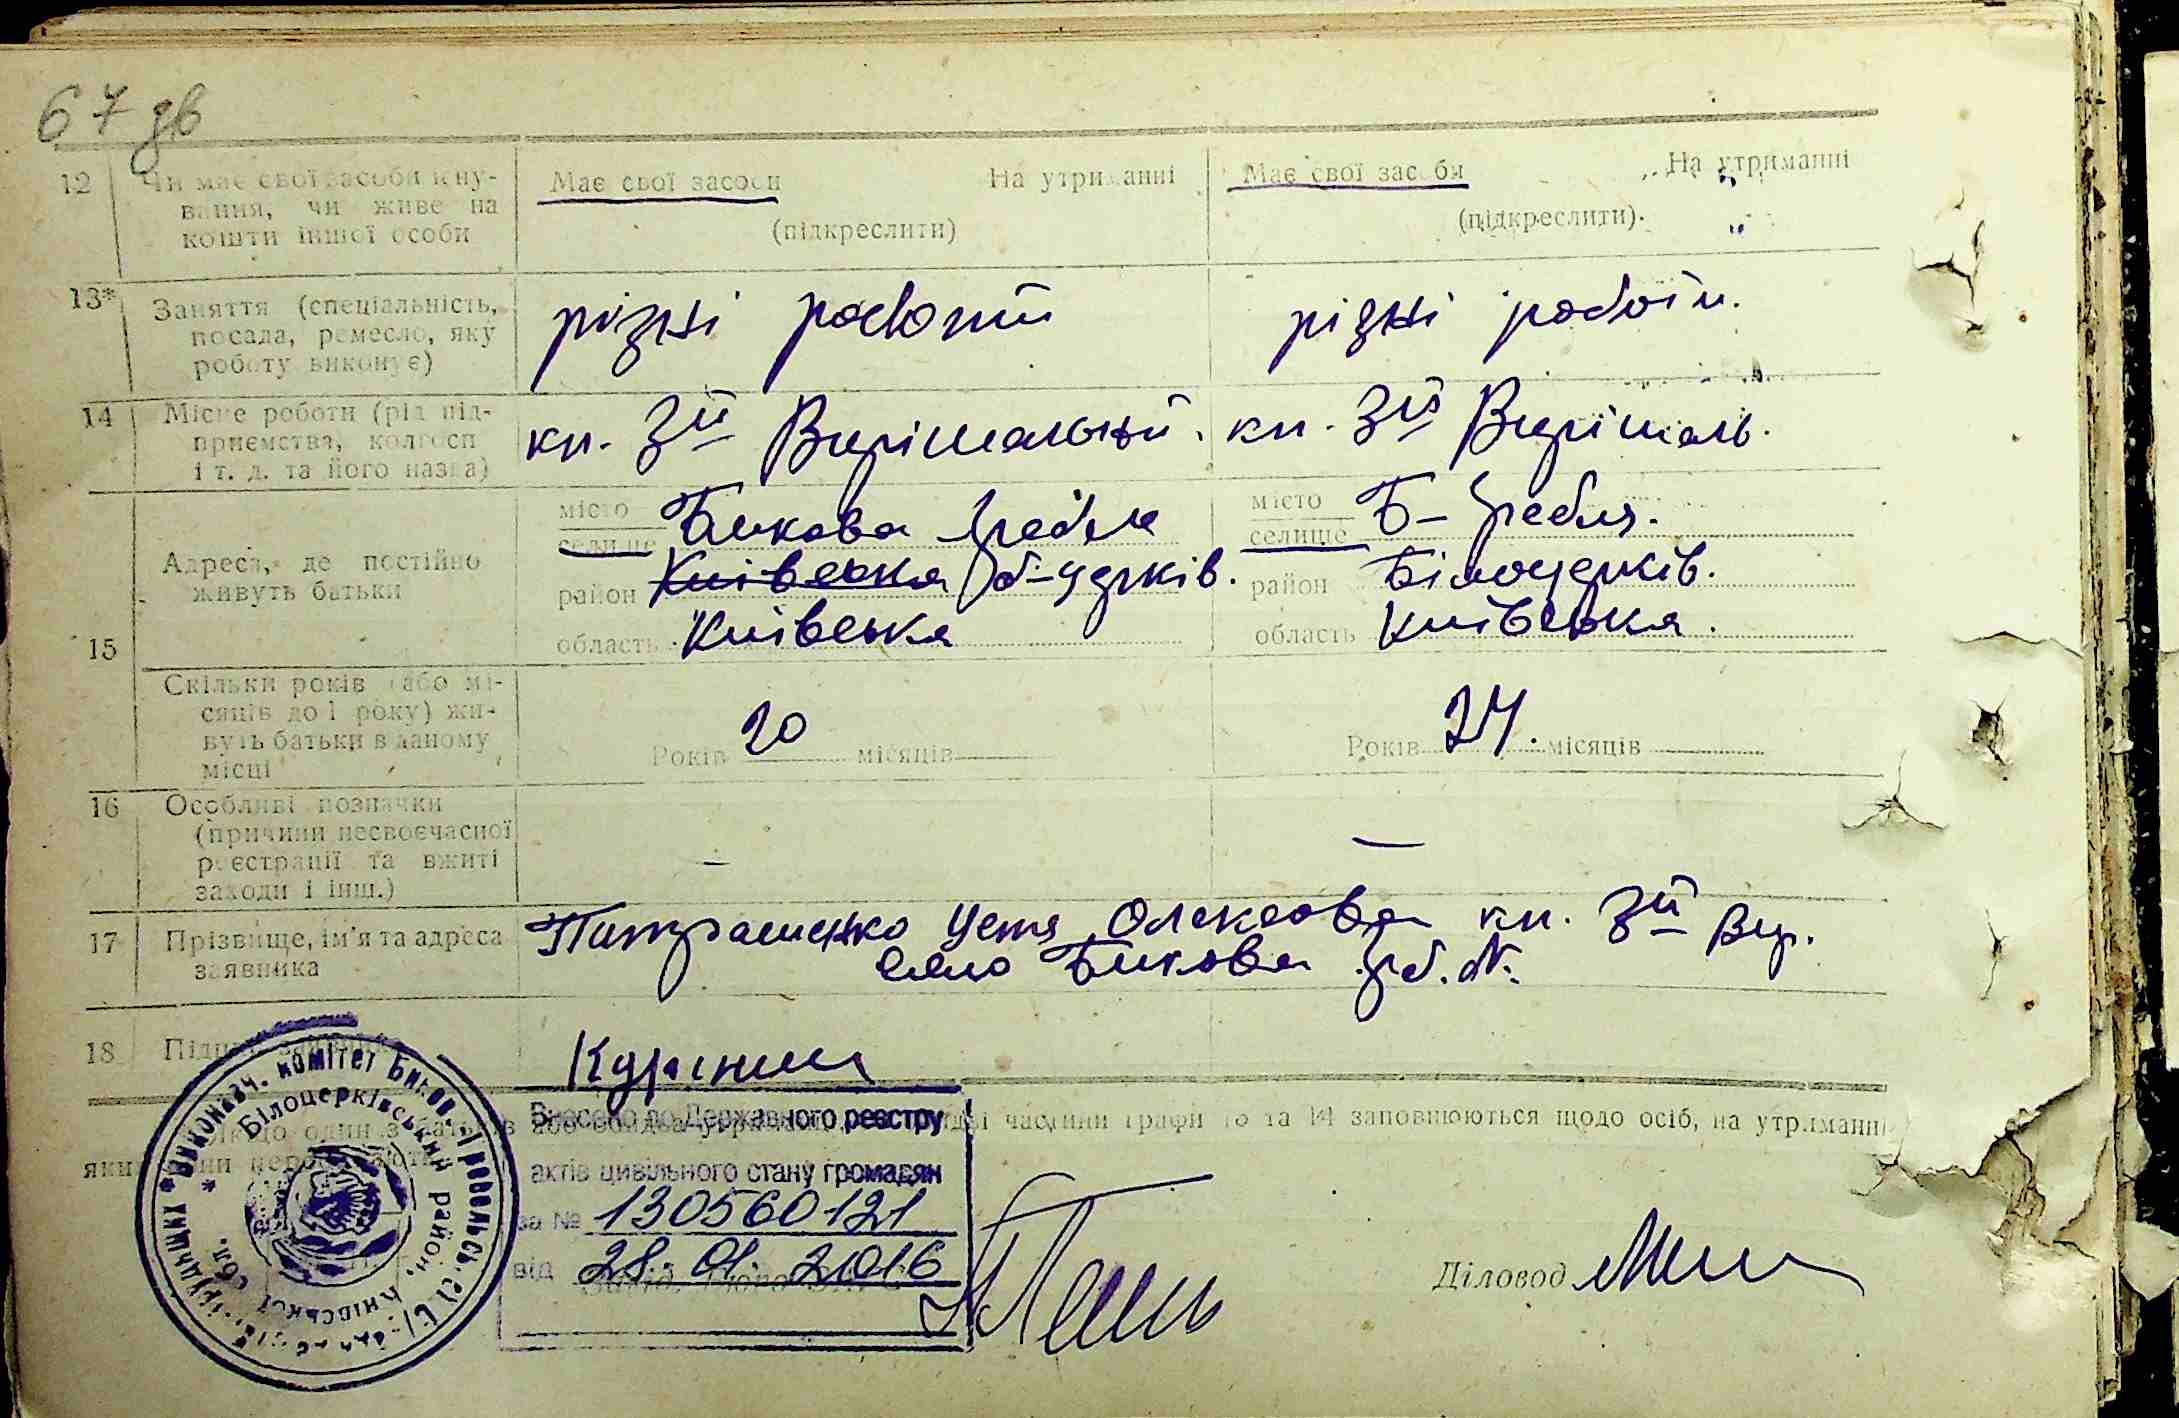 67 зв
12 Чи має свої засоби існу-
вання, чи живе на
кошти іншої особи
Має свої засоби На утриманні
(підкреслити)
Має свої засоби На утриманні
(підкреслити).
13* Заняття (спеціальність,
посада, ремесло, яку
роботу виконує)
різні роботи
різні роботи.
14 Місце роботи (рід під-
приємства, колгосп
і т. д. та його назва)
кп. 3й Вирішальний.
кп. 3й Вирішаль.
15 Адреса, де постійно
живуть батьки
місто
селище Бикова Гребля
район Київська Б-церків.
область Київська
місто
селище Б-Гребля.
район Білоцерків.
область Київська.
Скільки років (або мі-
сяців до 1 року) жи-
вуть батьки в даному
місці
Років 20 місяців
Років 24. місяців
16 Особливі позначки
(причини несвоєчасної
реєстрації та вжиті
заходи і інш.)
—
—
17 Прізвище, ім'я та адреса
заявника
Устя Олексовна кп. 3й Вир.
село Бикова Гребля.
18 Підпис заявника
Виконавч. комітет Биково-Гребельсь.
Білоцерківський район, Київської обл.
Внесено до Державного реєстру
актів цивільного стану громадян
за № 130560121
від 28.01.2016
частини графи 13 та 14 заповнюються щодо осіб, на утриманні
Діловод